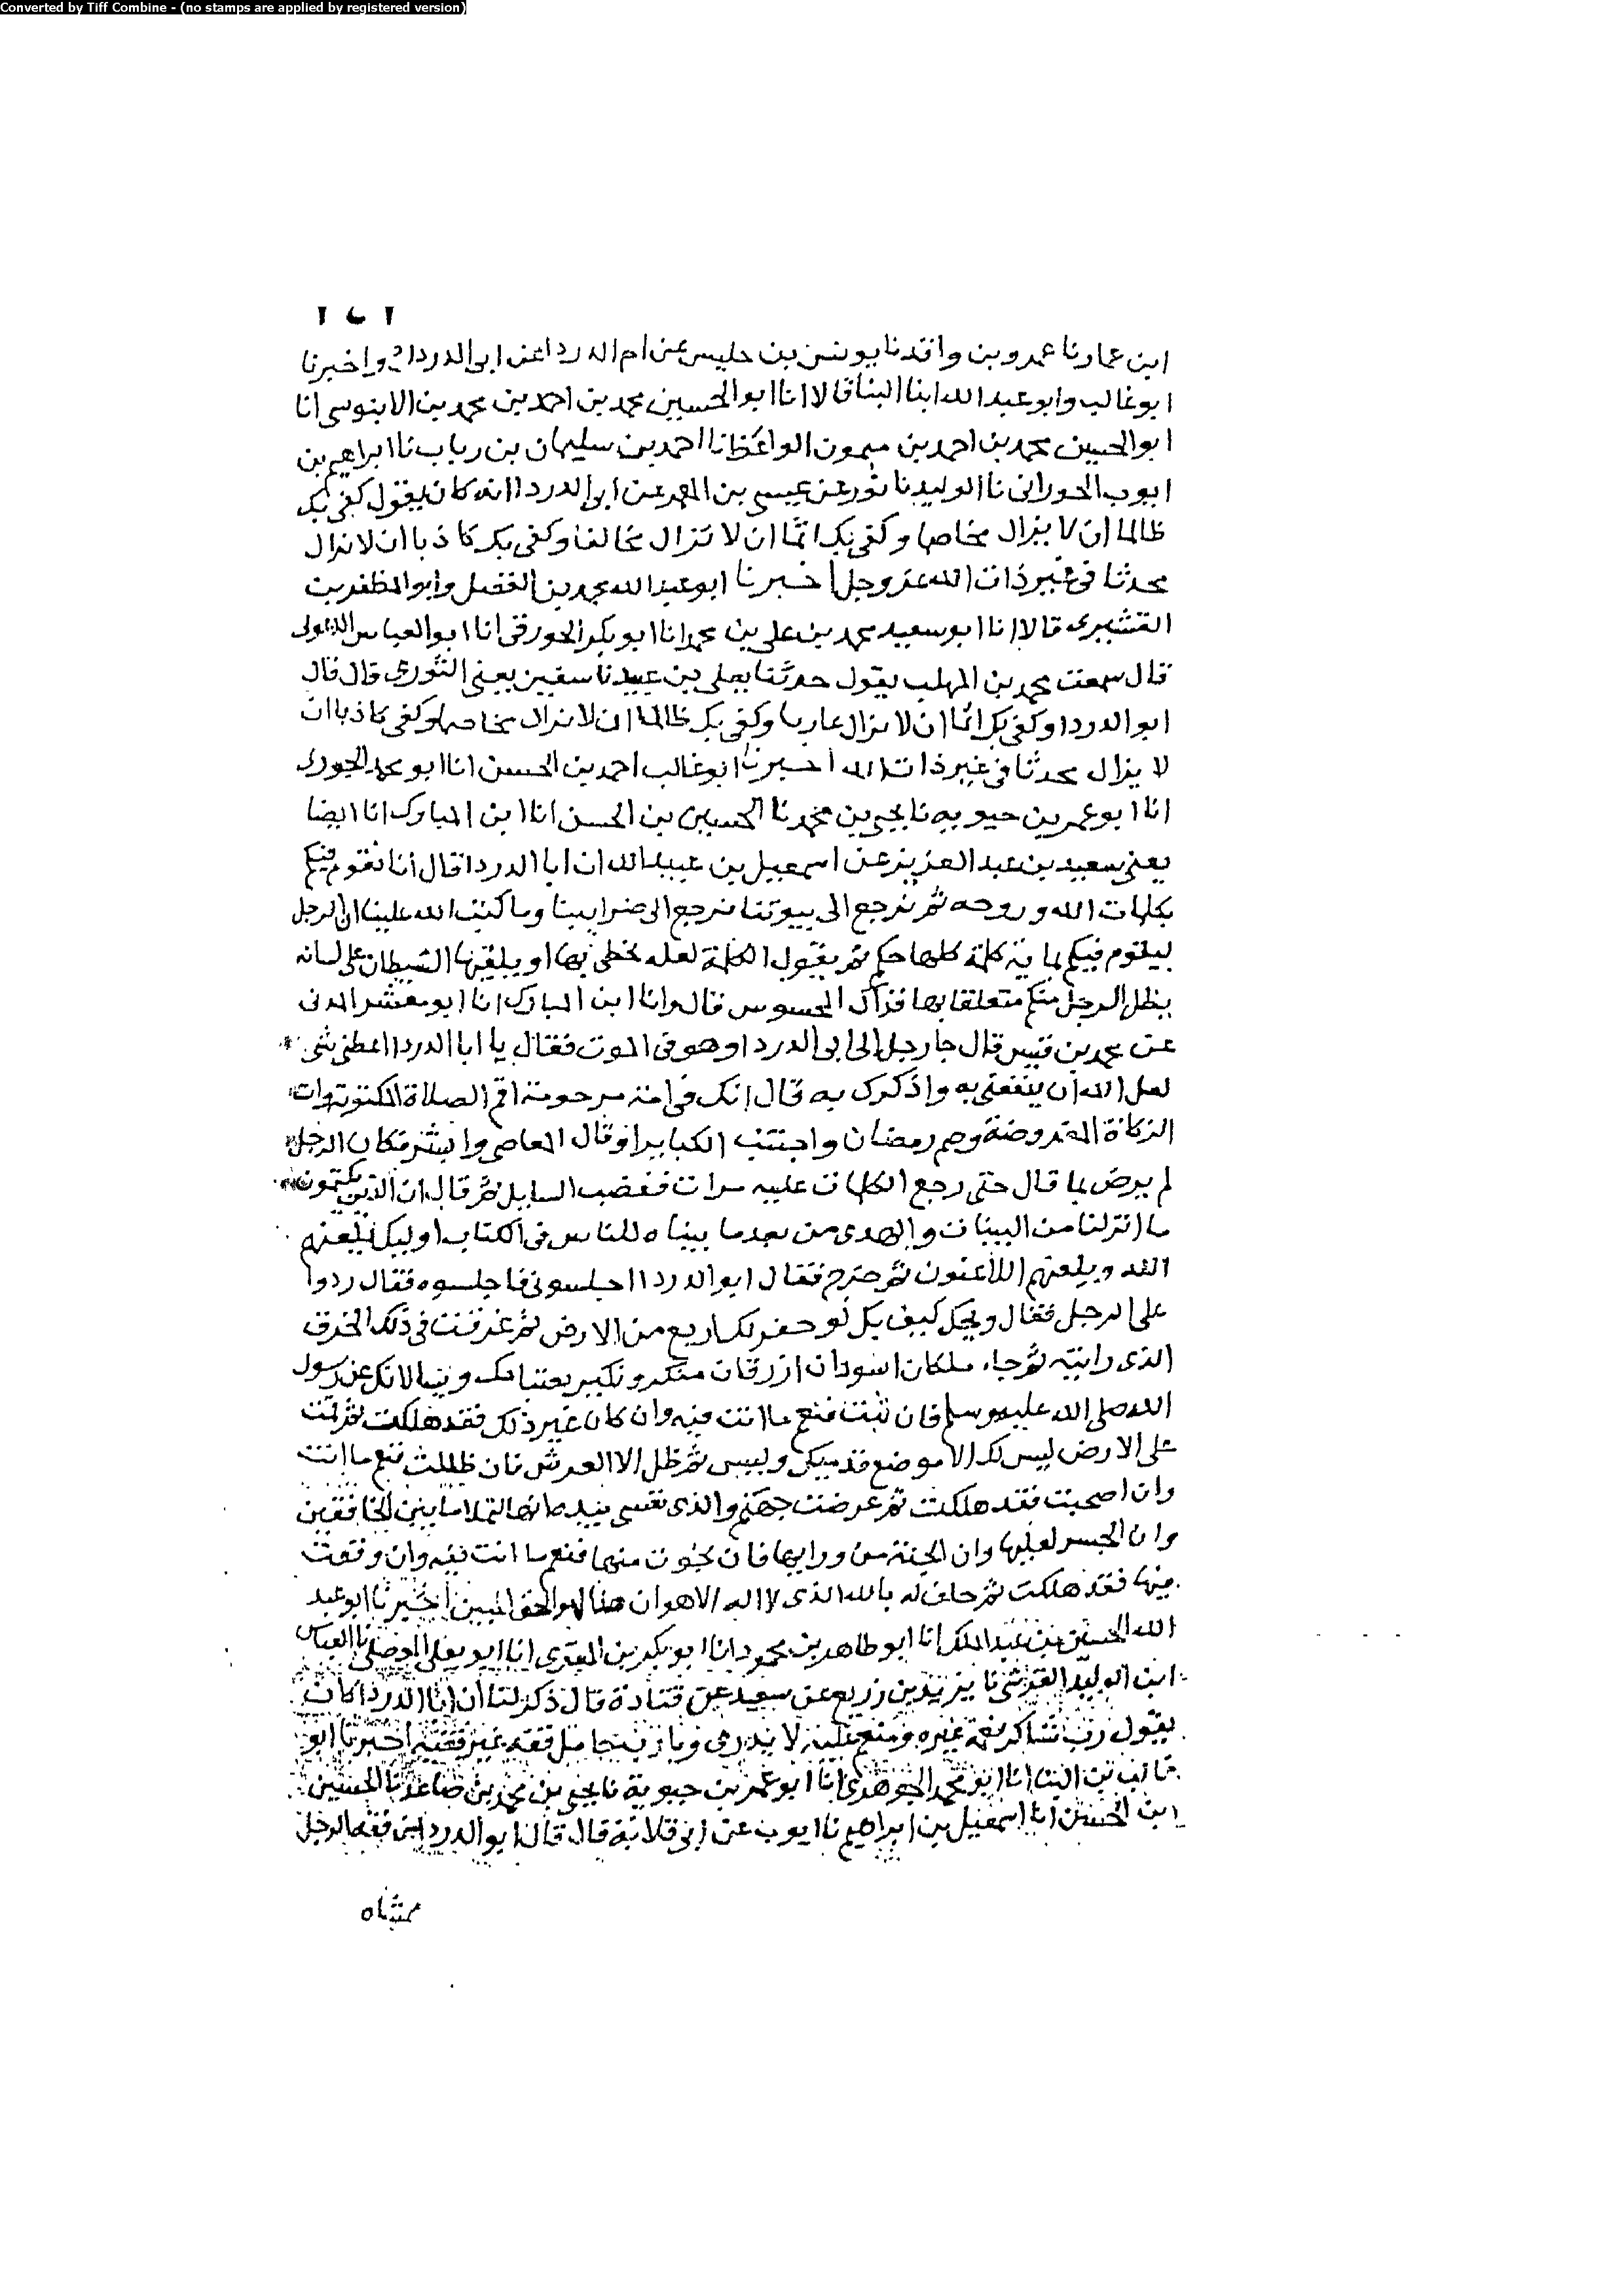 Converted by Tiff Combine - (no stamps are applied by registered version)
ابن عمار نا عمرو بن واقد نا يونس بن حليس عن ام الدردا عن ابى الدرداء واخبرنا
ابو غالب وابو عبد الله ابنا البنا قالا انا ابو الحسين محمد بن احمد بن محمد بن الابنوسى انا
ابو الحسين محمد بن احمد بن ميمون الواعظ انا احمد بن سليمان بن رباب نا ابراهيم بن
ايوب الحورانى نا الوليد نا ثور عن عيسى بن عن ابى الدردا انه كان يقول كفى بك
ظالما ان لا يزال مخاصما وكفى بك اثما ان لا تزال مخالفا وكفى بك كاذبا ان لا تزال
محدثا فى غير ذات الله عز وجل اخبرنا ابو عبد الله محمد بن الفضل وابو المظفر بن
القشيرى قالا انا ابو سعيد محمد بن على بن محمد انا ابو بكر الجوزقى انا ابو العباس الدغولى
قال سمعت محمد بن المهلب يقول حدثنا يعلى بن عبيد نا سفين يعنى الثورى قال قال
ابو الدردا وكفى بك اثما ان لا تزال مماريا وكفى بك ظالما ان لا تزال مخاصما وكفى كاذبا ان
لا يزال محدثا فى غير ذات الله اخبرنا ابو غالب احمد بن الحسن انا ابو محمد الجوهرى
انا ابو عمر بن حيويه نا يحيى بن محمد نا الحسين بن الحسن انا ابن المبارك انا ايضا
يعنى سعيد بن عبد العزيز عن اسمعيل بن عبيد الله ان ابا الدردا قال انا نقوم فيكم
بكلمات الله وروحه ثم نرجع الى بيوتنا فنرجع الى ضرايبنا وما كتب الله علينا ان الرجل
ليقوم فيكم بماية كلمة كلها حكم ثم يقول الكلمة لعله يخطى بها او يلقيها الشيطان على لسانه
يظل الرجل منكم متعلقا بها فذاك المحسوس قال وانا ابن المبارك انا ابو معشر المدنى
عن محمد بن قيس قال جا رجل الى ابى الدردا وهو فى الموت فقال يا ابا الدردا اعظنى بشى
لعل الله ان ينفعنى به واذكرك به قال انك فى امة مرحومة اقم الصلاة المكتوبة وات
الزكاة المفروضة وصم رمضان واجتنب الكباير او قال المعاصى وابشر فكان الرجل
لم يرض بما قال حتى رجع الكلمات عليه مرات فغضب السايل ثم قال ان الذين يكتمون
ما انزلنا من البينات والهدى من بعد ما بيناه للناس فى الكتاب اوليك يلعنهم
الله ويلعنهم اللاعنون ثم خرج فقال ابو الدردا اجلسونى فاجلسوه فقال ردوا
على الرجل فقال ويحك كيف بك لو حفر لك اربع من الارض ثم غرقت فى ذلك الخرق
الذى رايته ثم جاء ملكان اسودان ازرقان منكر ونكير يعنتانك ويسالانك عن رسول
الله صلى الله عليه وسلم فان ثبت فنعم ما انت فيه وان كان غير ذلك فقد هلكت ثم قمت
على الارض ليس لك الا موضع قدميك وليس ثم ظل الا العرش فان ظللت فنعم ما انت
وان اضحيت فقد هلكت ثم عرضت جهنم والذى نفسى بيده انها لتملا ما بين الخافقين
وان الجسر لعليها وان الجنة من ورايها فان نجوت منها فنعم ما انت فيه وان وقعت
فيها فقد هلكت ثم حلف له بالله الذى لا اله الا هو ان هذا لهو الحق المبين اخبرنا ابو عبد
الله الحسين بن عبد الملك انا ابو طاهر بن محمود انا ابو بكر بن المقرى انا ابو يعلى الموصلى نا العباس
ابن الوليد القرشى نا يزيد بن زريع عن سعيد عن قتادة قال ذكر لنا ان ابا الدردا كان
يقول رب شاكر نعمة غيره ومنعم عليه لا يدرى ويا رب حامل فقه غير فقيه اخبرنا ابو
غالب بن البنا انا ابو محمد الجوهرى انا ابو عمر بن حيوية نا يحيى بن محمد بن صاعد نا الحسين
ابن الحسن انا اسمعيل بن ابراهيم نا ايوب عن ابى قلابة قال قال ابو الدردا من فقه الرجل
ممشاه